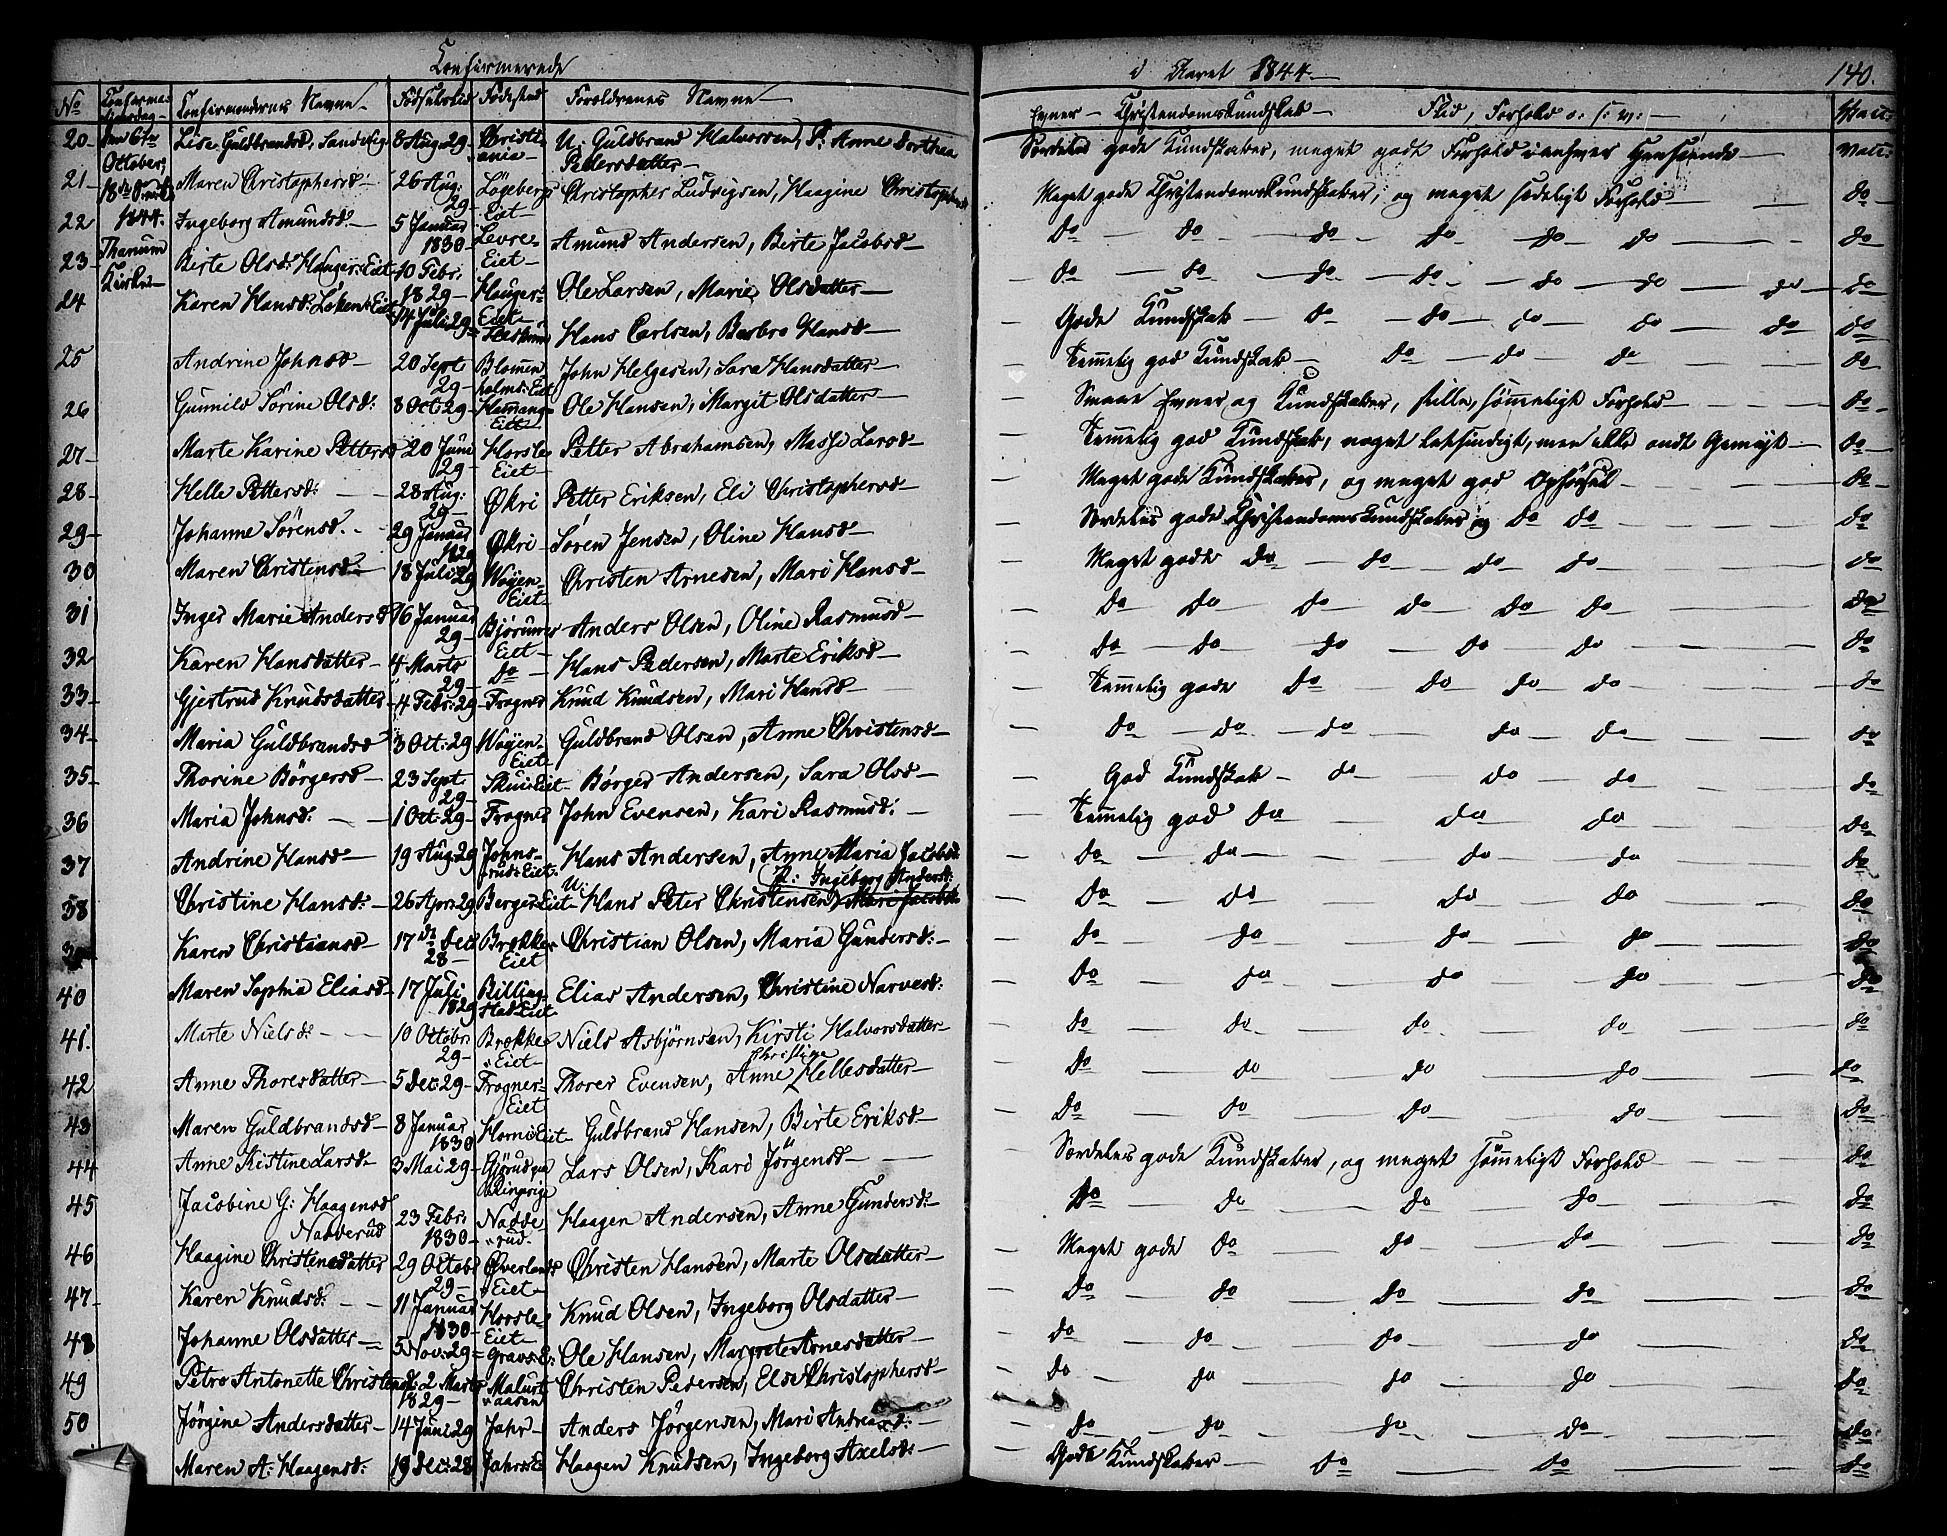 Confirmerede
i Aaret 1844.—
140.
No Confirma- Confirmandernes Navne— Fødselstid Fødested Forældrenes Navne—
Evner — Christendoms Kundskab — Flid, Forhold o: s: v: —
20- Den 6te Lise Guldbrandsd, Sandvig. 8 Aug. 29- Christi- U. Guldbrand Halvorsen, P. Anne Dorthea
October, ania- Pedersdatter—
Særdeles gode Kundskaber, meget godt Forhold i enhver Henseende —
21- Maren Christophersd:- 26 Aug: Løgebergs Christopher Ludvigsen, Haagine Christophersd
29- Eiet-
Meget gode Christendoms Kundskaber, og meget sædeligt Forhold — do
22 1844. Ingeborg Amundsd- 5 Januar Levre- Amund Andersen, Birte Jacobsd—
1830- Eiet-
do — do — do — do — do — do — do
23- Thanum Birte Olsd: Hauger: Eiet 10 Febr. Hauger: Ole Larsen, Marie Olsdatter—
Kirke- 1829- Eiet-
do — do — do — do — do — do — do — do
24 Karen Hansd: Løken: Eiet 14 Juli 29 Hans Carlsen, Barbro Hansd—
Gode Kundskab — do — do — do — do — do do
25 Andrine Johnsd— 20 Sept Blommen John Helgesen, Sara Hansdatter—
29- holms: Eiet
Temmelig god Kundskab — do — do — do do
26 Gunnild Sørine Olsd: 8 Oct: 29- Hamang- Ole Hansen, Margit Olsdatter—
Eiet-
Smaae Evner og Kundskaber, stille, sømmeligt Forhold — do
27- Marte Karine Petters 20 Juni Horsle Petter Abrahamsen, Masse Larsd—
29- Eiet-
Temmelig god Kundskab, noget letsindigt, men ikke ondt Gemyt — do
28- Helle Pettersd: 28 Aug: Økri Petter Eriksen, Eli Christophersd—
29-
Meget gode Kundskaber, og meget god Opførsel — do
29- Johanne Sørensd. 29 Januar Økri Søren Jensen, Oline Hansd—
1829
Særdeles gode Christendoms Kundskaber og do do — do
30 Maren Christensd- 18 Juli 29 Wøyen- Christen Arnesen, Mari Hansd—
Eiet
Meget gode do — do — do — do do
31 Inger Marie Andersd 16 Januar Bjørums Anders Olsen, Oline Rasmusd—
29- Eiet-
do do do do do do — do
32 Karen Hansdatter- 4 Marts do Hans Pedersen, Marte Eriksd—
29-
do — do — do — do — do do
33- Gjertrud Knudsdatter 4 Febr: 29- Frogner Knud Knudsen, Mari Hansd—
Temmelig gode do do — do — do do
34- Maria Guldbrandsd 3 Oct: 29 Wøyen- Guldbrand Olsen, Anne Christensd—
Eiet
do — do — do do — do do
35- Thorine Børgersd— 23 Sept Skui: Eiet Børger Andersen, Sara Olsd—
29-
God Kundskab — do — do — do do
36 Maria Johnsd: — 1 Oct: 29- Frogner John Evensen, Kari Rasmusd:—
Temmelig god do do do do
37 Andrine Hansd— 19 Aug 29 Johns- Hans Andersen, Anne Maria Jacobsd
rud: Eiet.
do — do do — do do
P: Ingeborg Andersd:
38 Christine Hansd:- 26 Apr: 29 Berger: Eiet U: Hans Peter Christensen, Mari Jacobsd
do do do do do
Karen Christiansd— 17 de Dec Brække Christian Olsen, Maria Gundersd:—
28- Eiet
do — do — do — do do
40 Maren Sophia Eliasd- 17 Juli Billing- Elias Andersen, Christine Narvesd:
1829 stad Eiet
do — do — do — do do
41. Marte Nielsd: — 10 Octobr Brække Niels Asbjørnsen, Kirsti Halvorsdatter—
29- Eiet-
do — do — do — do do
Christine
42 Anne Thoresdatter— 5 Dec: 29- Frogner- Thorer Evensen, Anne Hellesdatter—
Eiet
do — do do — do do
43 Maren Guldbrandsd- 8 Januar Horni: Eiet Guldbrand Hansen, Birte Eriksd—
1830
do — do — do — do do
44 Anne Kistine Larsd- 3 Mai 29- Gjørud paa Lars Olsen, Kari Jörgensd—
Ringrige
Særdeles gode Kundskaber, og meget sømmeligt Forhold — do
45 Jacobine G: Haagensd 23 Febr: Nadde Haagen Andersen, Anne Gundersd:
Nadderud 1830- rud.
do — do — do — do do
46 Haagine Christensdatter 29 Octobr Øverlands Christen Hansen, Marte Olsdatter—
29- Eiet-
Meget gode do — do — do — do
47- Karen Knudsd: — 11 Januar Horsle- Knud Olsen, Ingeborg Olsdatter—
1830- Eiet-
do — do — do — do — do
48 Johanne Olsdatter— 5 Nov: 29= Gravs: E: Ole Hansen, Margrete Arnesdatter—
do — do — do — do do
49 Petro Antonette Christensd: 2 Marts Malurt Christen Pedersen, Else Christophersd—
1829- aasen
do do — do — do do
50 Jørgine Andersdatter— 14 Juni 29 Jahr- Anders Jørgensen, Mari Andreasd:—
do — do — do — do do
Maren A: Haagensd: 19 Dec: 28 Haagen Knudsen, Ingeborg Axelsd:—
Gode Kundskaber — do — do — do